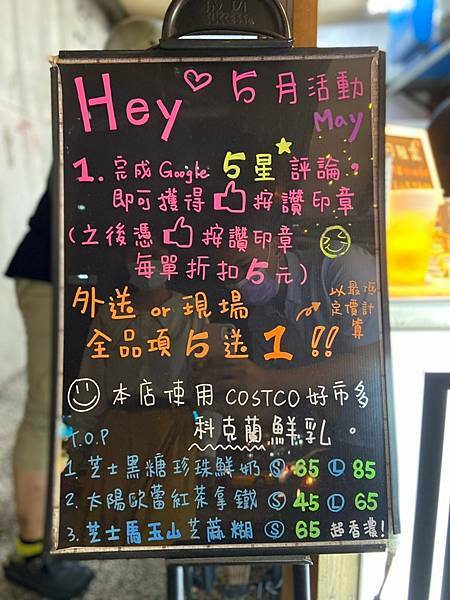 Hey 5月活動
May
1. 完成 Google 5星 評論,
即可獲得 按讚印章
(之後憑 按讚印章
每單折扣5元)
外送 or 現場
全品項 5 送 1 !!
以最低
定價計
算
本店使用 COSTCO 好市多
科克蘭鮮乳。
T.O.P
1. 芝士黑糖珍珠鮮奶 S 65 L 85
2. 太陽歐蕾紅茶拿鐵 S 45 L 65
3. 芝士馬玉山芝麻糊 S 65 超香濃!